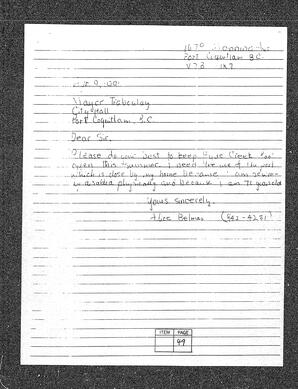 Port Coquitlam B.C.
Mayor
City Hall
Port Coquitlam, B.C.
Dear Sir,
Please do your best to keep Hyde Creek Pool
open this summer. I need the use of the pool
which is close by my home because I am
disabled physically and because I am 71 years old
Yours sincerely,
Alice Belmas (942-4251)
ITEM PAGE
49